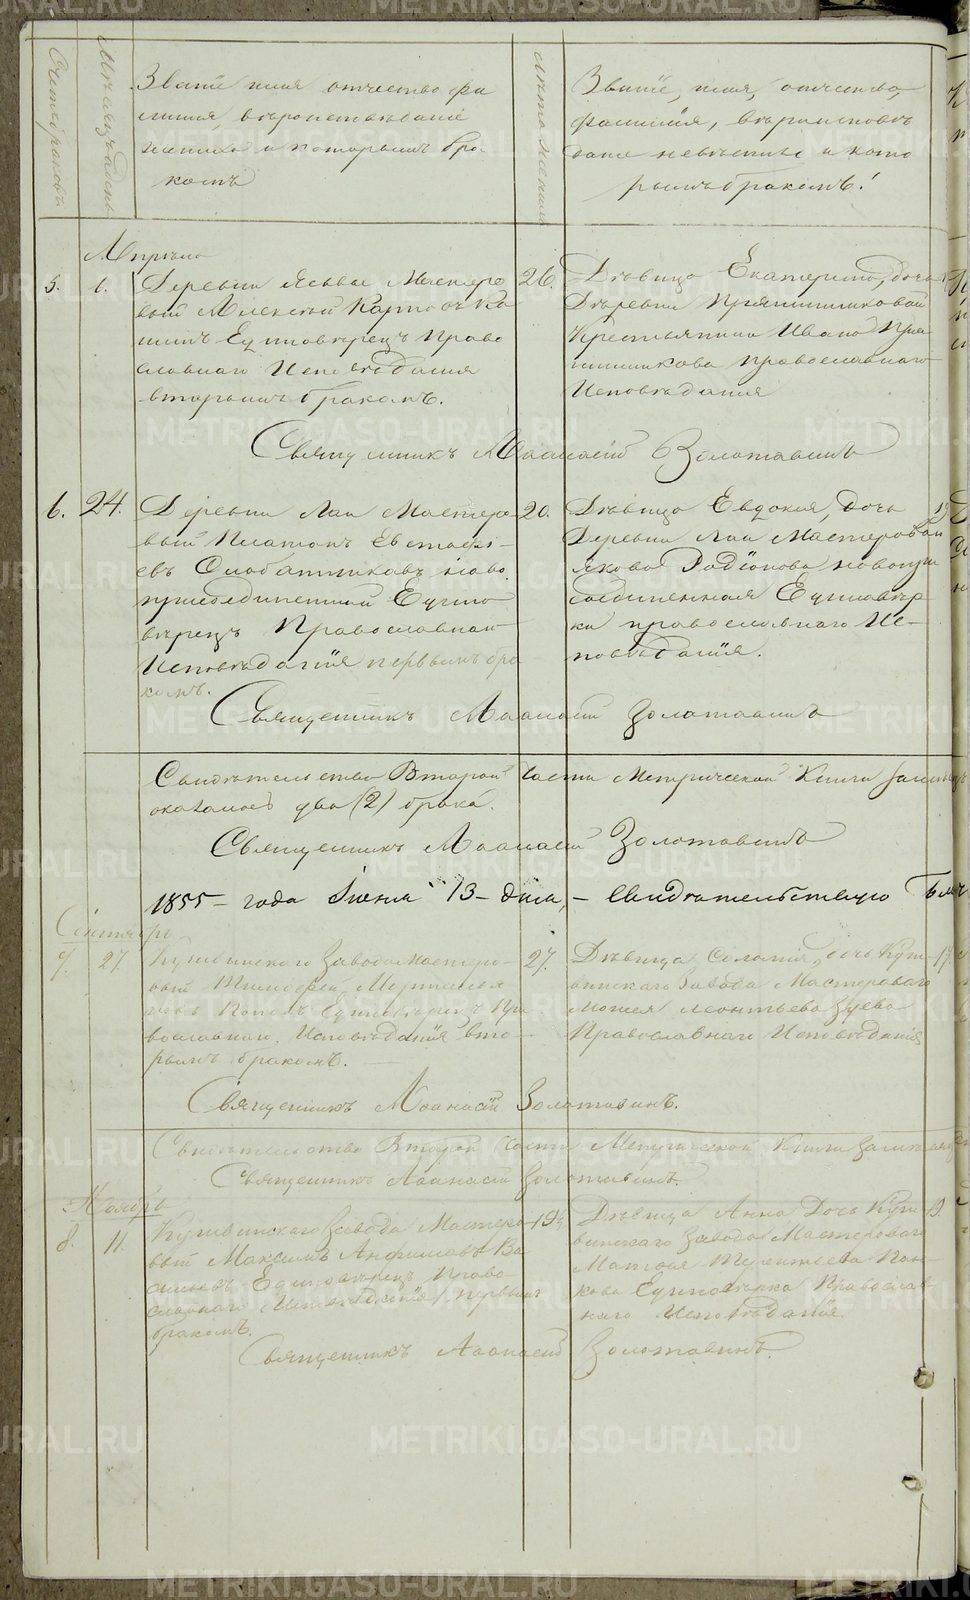 Счетъ браковъ
Мѣсяцъ и день
Званіе имя отчество фа
милія, вѣроисповѣданіе
жениха и которымъ бра
комъ
Лѣта жениха
Званіе, имя, отчество,
фамилія, вѣроисповѣ
даніе невѣсты и кото
рымъ бракомъ.
5.
Деревни
Мастеро
вый Алексѣй Карповъ Ка
шинъ Единовѣрецъ Право
славнаго Исповѣданія
вторымъ бракомъ.
26.
Дѣвица Екатерина, дочь
Деревни
Крестьянина Ивана
православнаго
Исповѣданія
Священникъ Аѳанасій Золотавинъ
6.
24.
Деревни Лаи Мастеро
вый Платонъ Евстафі
евъ Слобатчиковъ ново
присоединенный Едино
вѣрецъ Православнаго
Исповѣданія первымъ бра
комъ.
20.
Дѣвица Евдокія, дочь
Деревни Лаи Мастероваго
Якова Родіонова новопри
соединенная Единовѣр
ка православнаго Ис-
повѣданія.
19
Священникъ Аѳанасій Золотавинъ
Свидѣтельство Второй части Метрической Книги
оказалось два (2) брака.
Священникъ Аѳанасій Золотавинъ
1855 - года Іюня 13 - дня, - свидѣтельствую
Сентябрь
7.
27
Кушвинскаго Завода Мастеро-
вый Тимофей
Поповъ Единовѣрецъ Пра
вославнаго Исповѣданія вто
рымъ бракомъ.
27.
Дѣвица Соломія, дочь Куш-
винскаго Завода Мастероваго
Мокея Леонтьева Зуева
Православнаго Исповѣданія
17
Священникъ Аѳанасій Золотавинъ.
Свидѣтельство Второй Части Метрической Книги
Священникъ Аѳанасій Золотавинъ.
Ноябрь
8.
11.
Кушвинскаго Завода Мастеро
вый Максимъ Анфимовъ Ва
сильевъ Единовѣрецъ Право
славнаго Исповѣданія первымъ
бракомъ.
19
Дѣвица Анна Дочь Куш-
винскаго Завода Мастероваго
Матвѣя Терентьева
Единовѣрка Православ
наго Исповѣданія
19.
Священникъ Аѳанасій Золотавинъ.
METRIKI.GASO-URAL.RU